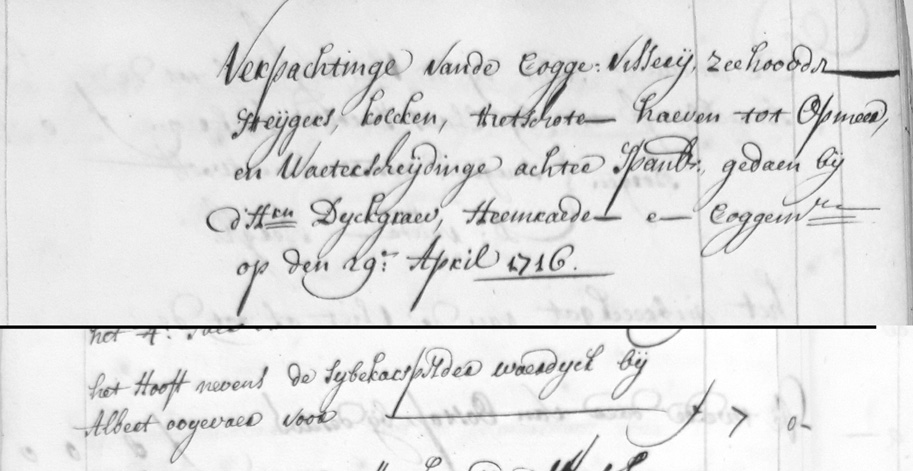 Verpachtinge vande Cogge: Visserij, zeehoofdn
steijgers, kolcken, Grotschote haeven tot Opmeer,
en Waeterscheijdinge achter Spanb:, gedaen bij
d'Hren Dyckgraev, Heemraede e Coggemrs
op den 29: April 1716.
het 4:
het Hooft nevens de Sybekarspilder waerdyck bij
Albert oogevaer voor f 7 0-